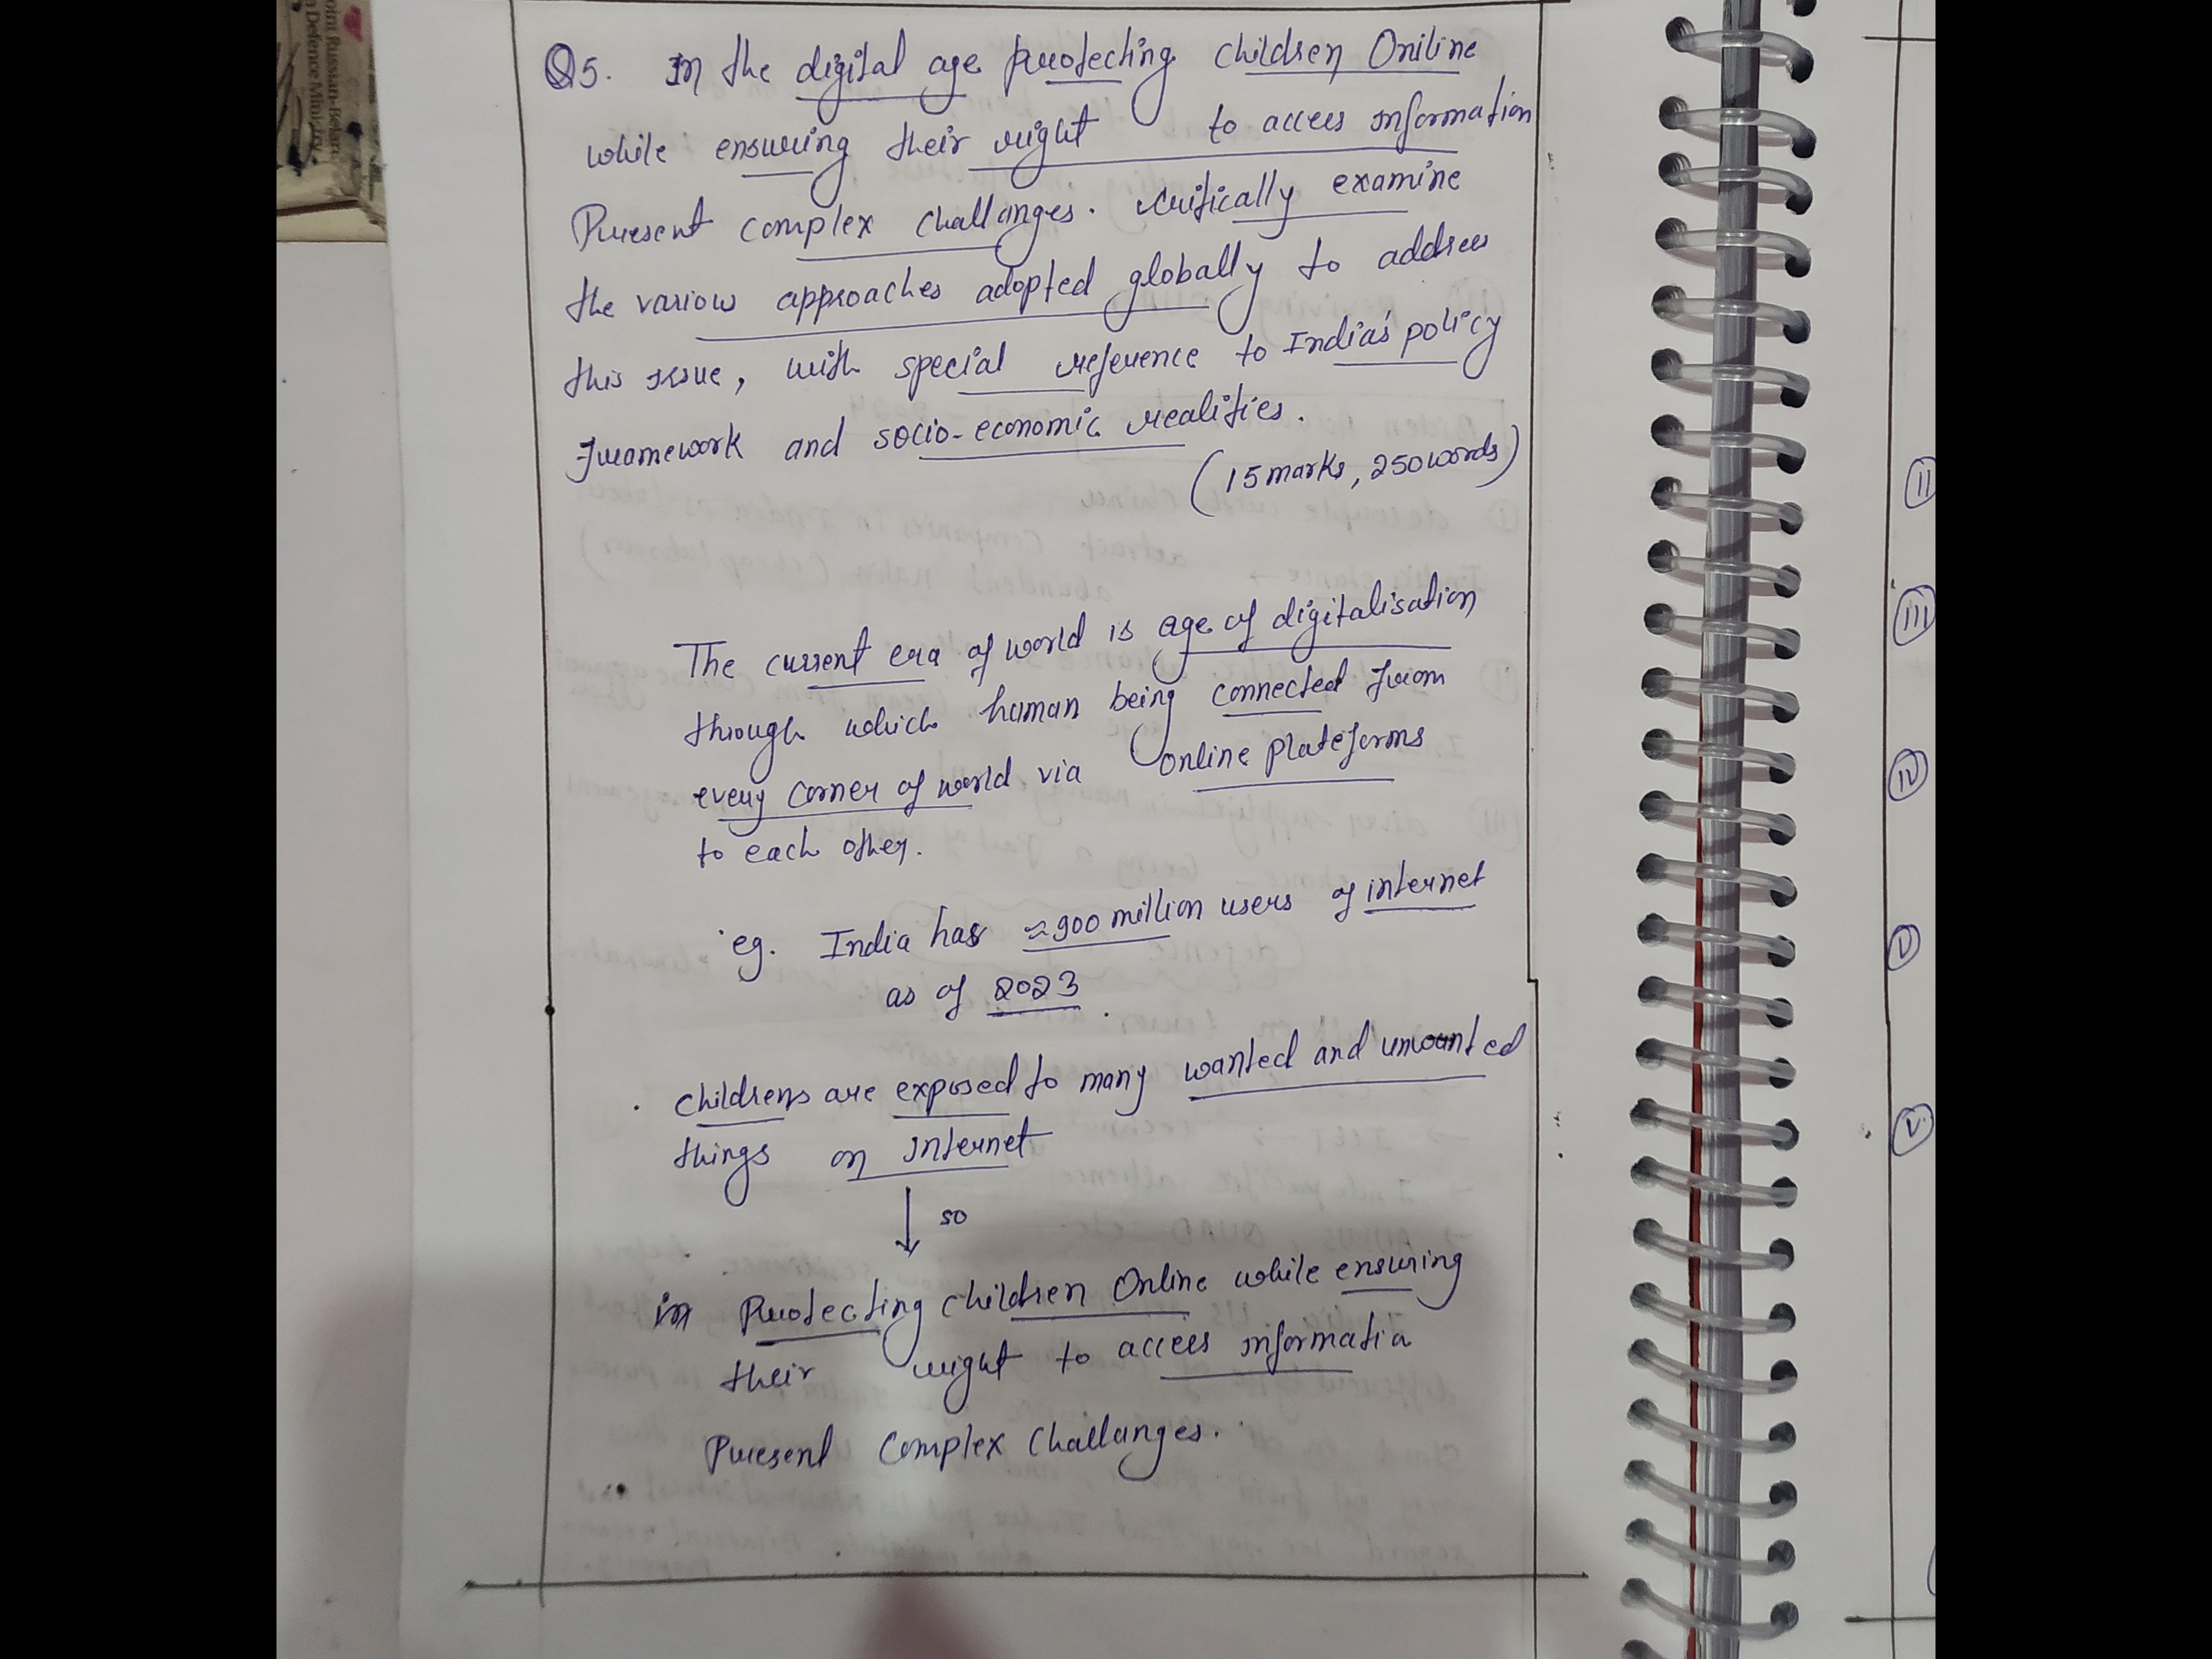 Q5. In the digital age protecting children Oniline
while ensuring their right to access information
Present complex challanges. critically examine
the various approaches adopted globally to address
this issue, with special reference to India's policy
Framework and socio-economic realities.
(15 marks, 250 words)
The current era of world is age of digitalisation
through which human being connected from
every corner of world via online plateforms
to each other.
eg. India has ≈900 million users of internet
as of 2023.
childrens are exposed to many wanted and unwanted
things on internet
so
in Protecting children Online while ensuring
their right to access informatin
Present Complex Challanges.
oint Russian-Belaru
n Defence Ministry
II
III
IV
V
V